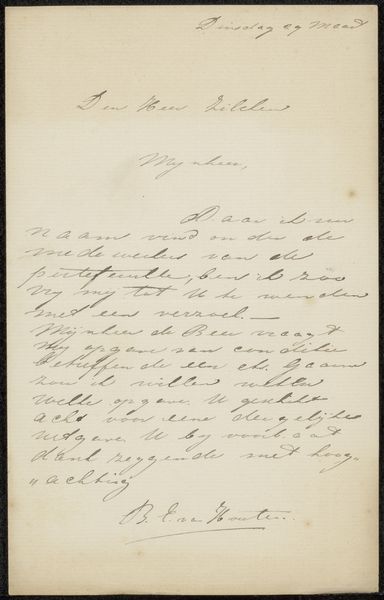 Dinsdag 29 Maart
Den Heer Zilcken
Mijnheer,
Daar ik uw
naam vind onder de
medewerkers van de
portefeuille, ben ik zoo
vrij mij tot U te wenden
met een verzoek. —
Mijnheer de Beer vraagt
mij opgave van conditie
betreffende een ets. Gaarne
zou ik willen weten
welke opgave U geschikt
acht voor eene dergelijke
uitgave. U bij voorbaat
dank zeggende met hoog-
"achting
B. E. van Houten.